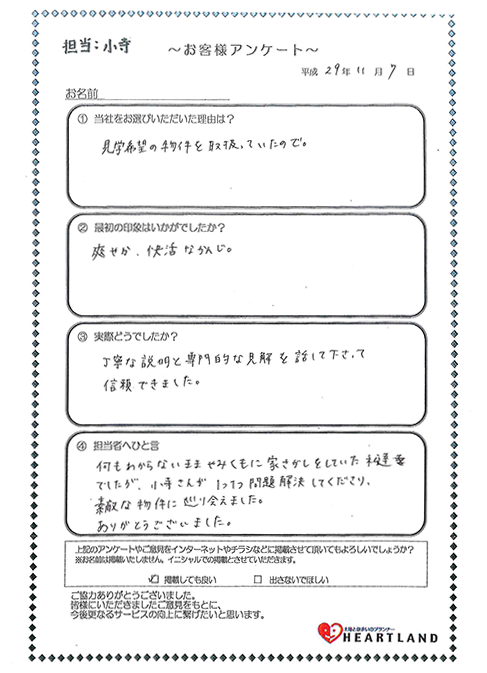 担当：小寺
～お客様アンケート～
平成 29年 11月 7日
お名前
① 当社をお選びいただいた理由は？
見学希望の物件を取扱っていたので。
② 最初の印象はいかがでしたか？
爽やか、快活なかんじ。
③ 実際どうでしたか？
丁寧な説明と専門的な見解を話して下さって
信頼できました。
④ 担当者へひと言
何もわからないまま やみくもに家さがしをしていた
でしたが、小寺さんが 1つ1つ問題解決してくださり、
素敵な物件に巡り会えました。
ありがとうございました。
上記のアンケートやご意見をインターネットやチラシなどに掲載させて頂いてもよろしいでしょうか？
※お名前は掲載いたしません。イニシャルでの掲載とさせていただきます。
☑ 掲載しても良い □ 出さないでほしい
ご協力ありがとうございました。
皆様にいただきましたご意見をもとに、
今後更なるサービスの向上に繋げたいと思います。
HEARTLAND